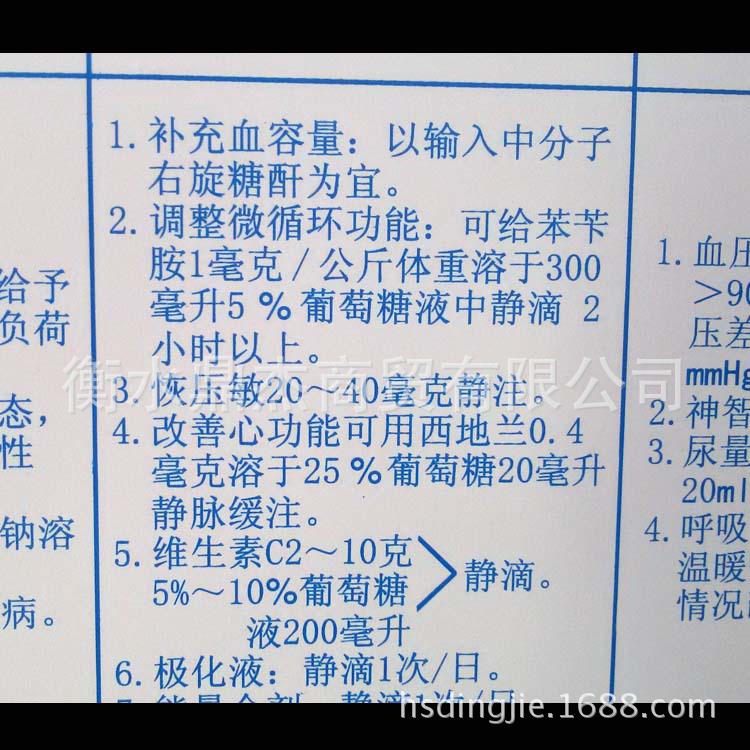 给予
负荷
态，
性
钠溶
病。
1. 补充血容量：以输入中分子
右旋糖酐为宜。
2. 调整微循环功能：可给苯苄
胺1毫克／公斤体重溶于300
毫升5％葡萄糖液中静滴 2
小时以上。
3. 恢压敏20～40毫克静注。
4. 改善心功能可用西地兰0.4
毫克溶于25％葡萄糖20毫升
静脉缓注。
5. 维生素C2～10克
5%～10%葡萄糖
液200毫升
＞静滴。
6. 极化液：静滴1次/日。
7. 能量合剂：静滴1次/日
1. 血压
＞90
压差
mmHg
2. 神智
3. 尿量
20ml
4. 呼吸
温暖
情况
衡水鼎杰商贸有限公司
hsdingjie.1688.com